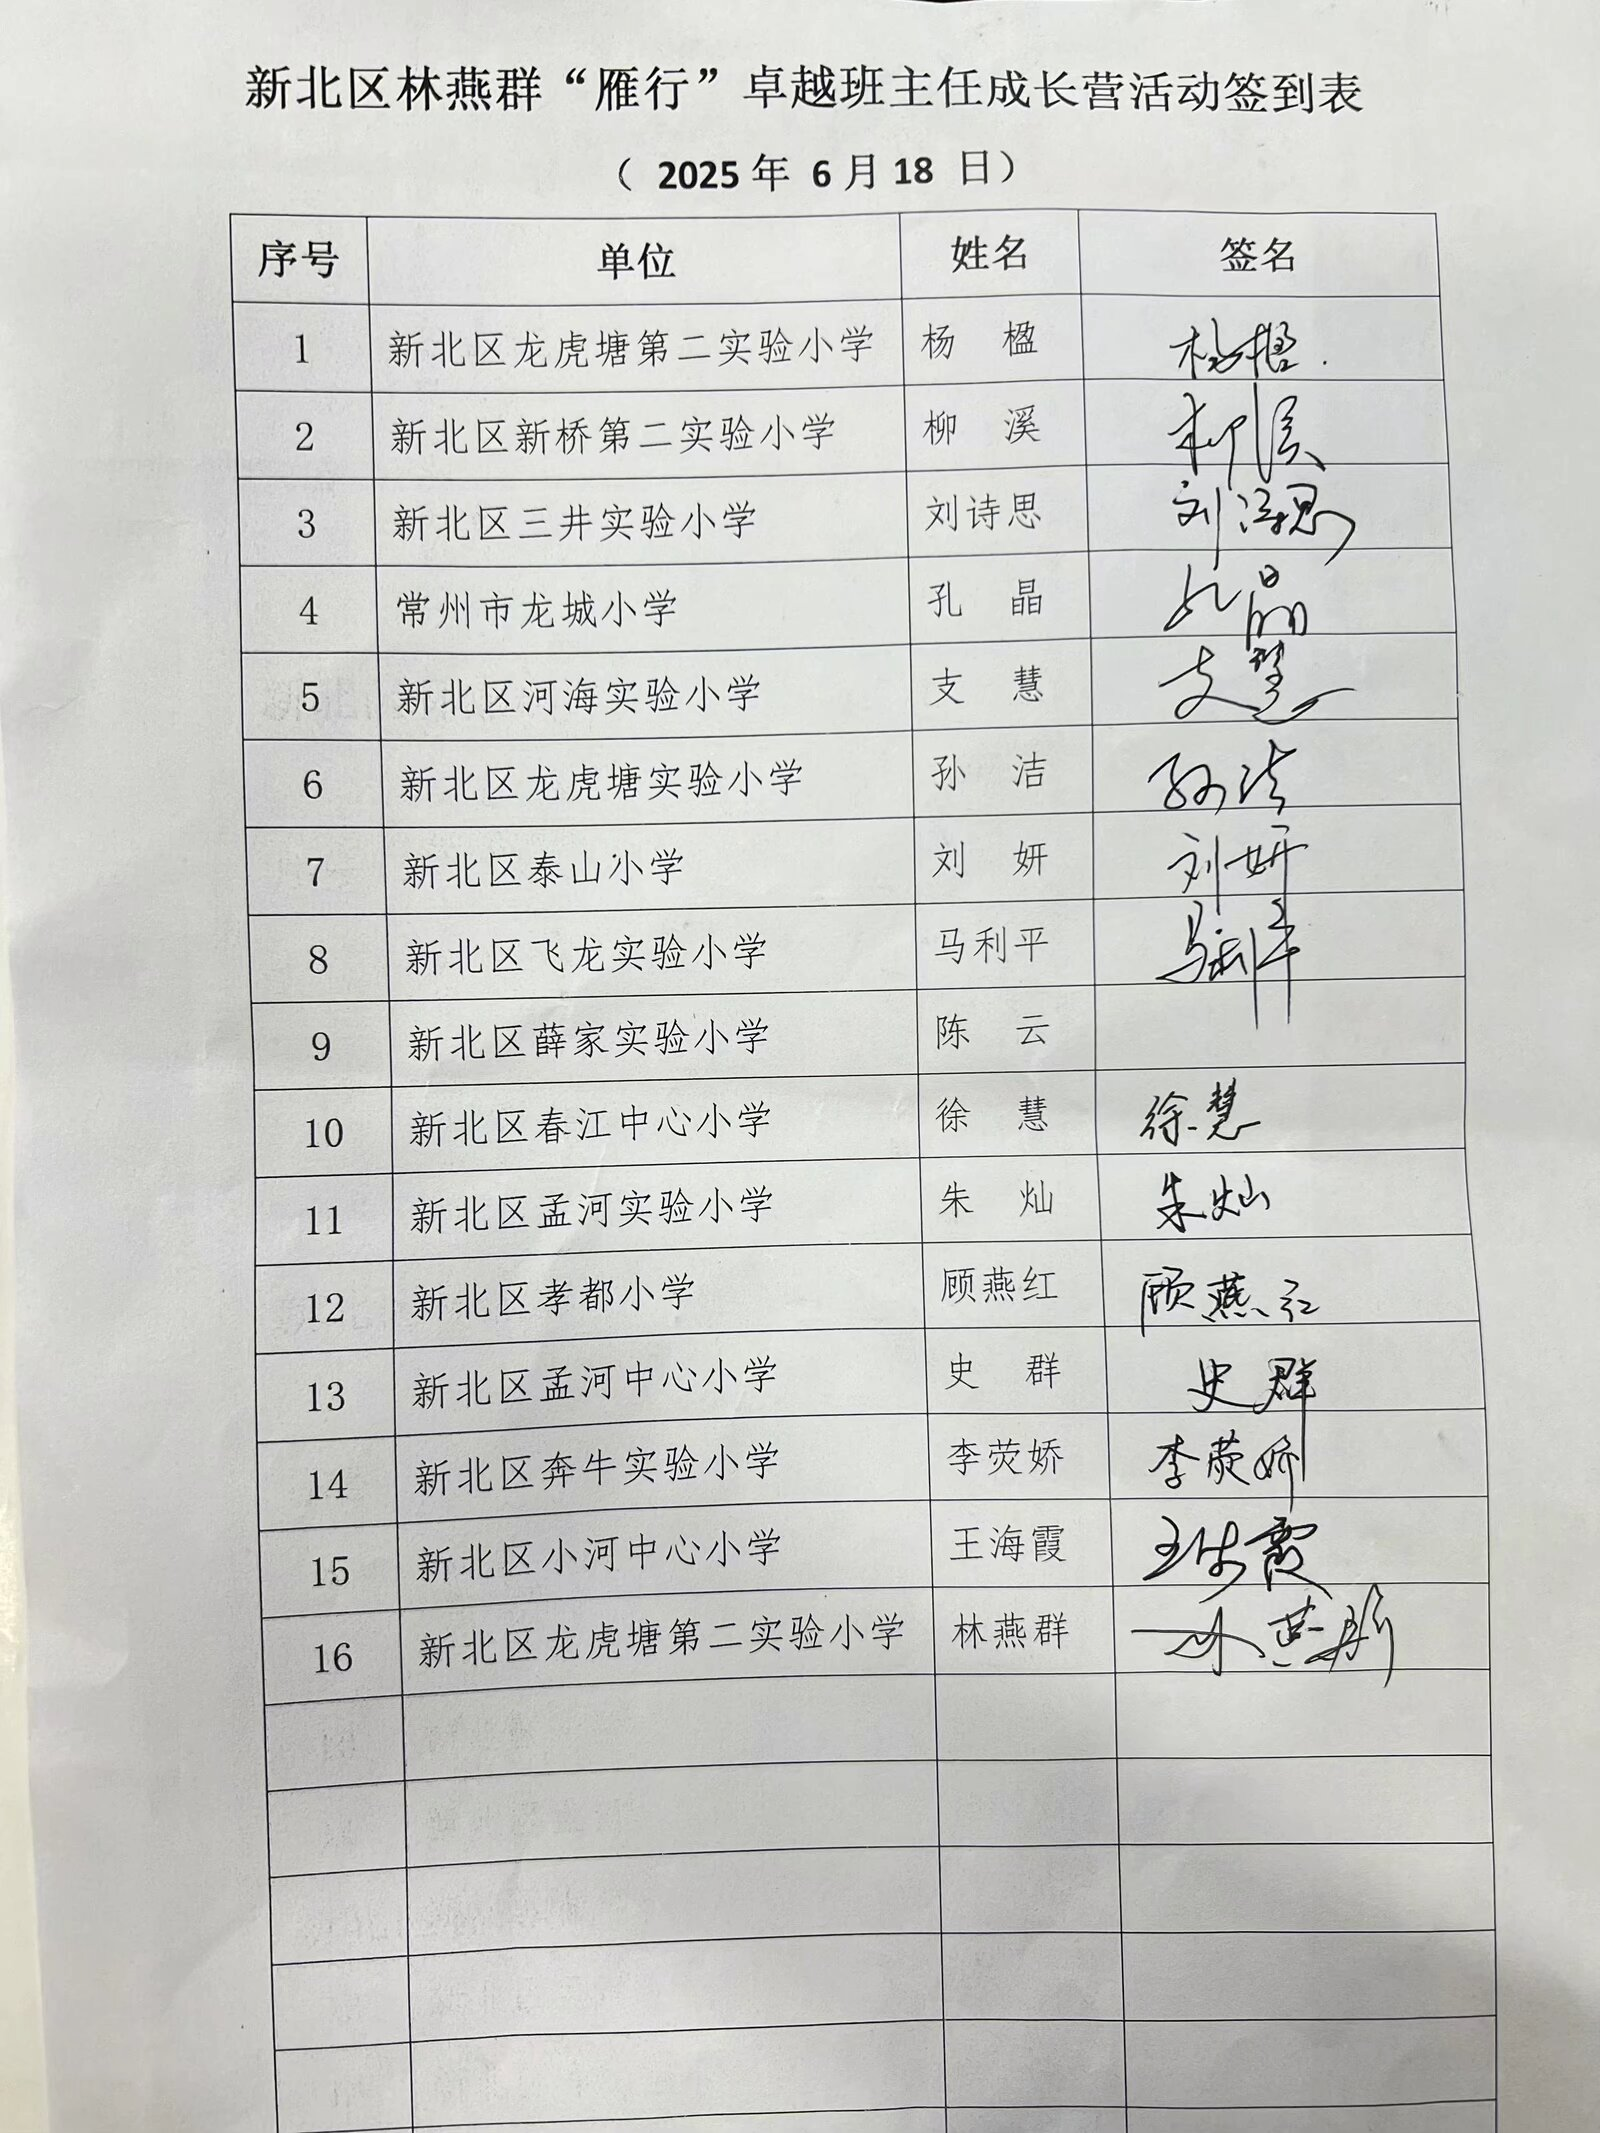 新北区林燕群“雁行”卓越班主任成长营活动签到表
（ 2025年 6月18 日）
序号 单位 姓名 签名
1 新北区龙虎塘第二实验小学 杨 楹 杨楹.
2 新北区新桥第二实验小学 柳 溪 柳溪
3 新北区三井实验小学 刘诗思 刘诗思
4 常州市龙城小学 孔 晶 孔晶
5 新北区河海实验小学 支 慧 支慧
6 新北区龙虎塘实验小学 孙 洁 孙洁
7 新北区泰山小学 刘 妍 刘妍
8 新北区飞龙实验小学 马利平 马利平
9 新北区薛家实验小学 陈 云
10 新北区春江中心小学 徐 慧 徐慧
11 新北区孟河实验小学 朱 灿 朱灿
12 新北区孝都小学 顾燕红 顾燕红
13 新北区孟河中心小学 史 群 史群
14 新北区奔牛实验小学 李荧娇 李荧娇
15 新北区小河中心小学 王海霞 王海霞
16 新北区龙虎塘第二实验小学 林燕群 林燕群